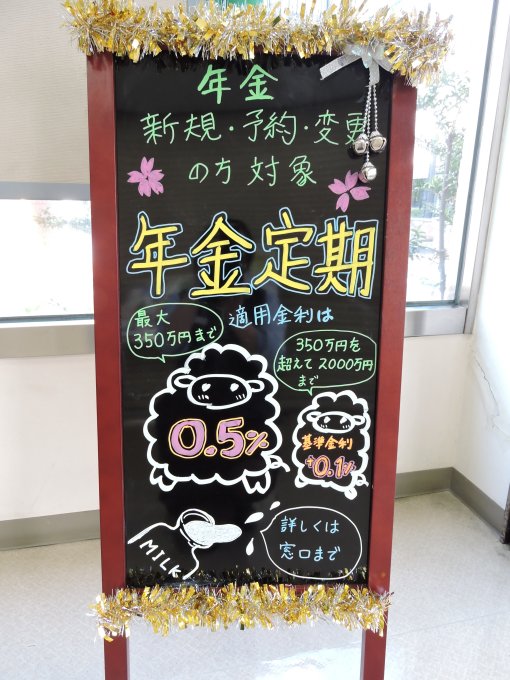 年金
新規・予約・変更
の方対象
年金定期
適用金利は
最大
350万円まで
0.5%
350万円を
超えて2000万円
まで
基準金利
+0.1%
MILK
詳しくは
窓口まで